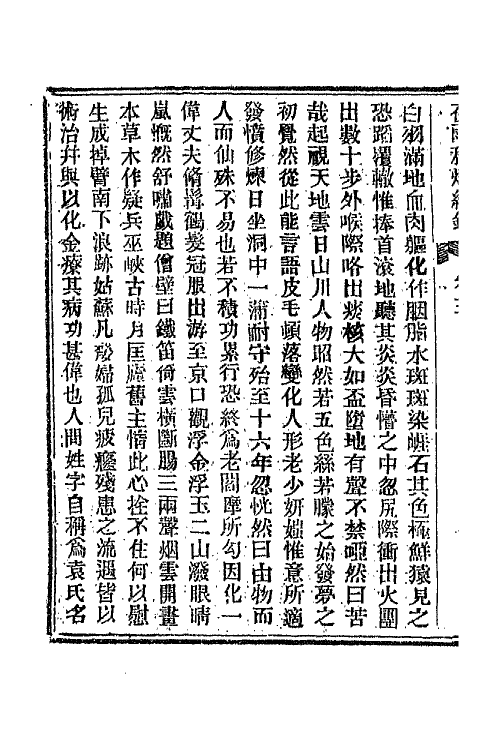 白羽滿地血肉軀化作胭脂水斑斑染巉石其色極鮮猿見之
恐蹈覆轍惟捧首滾地聽其炎炎昏懵之中忽尻際衝出火團
出數十步外喉際咯出痰核大如盃墮地有聲不禁啞然曰苦
哉起視天地雲日山川人物昭然若五色絲若矇之始發夢之
初覺然從此能言語皮毛頓落變化人形老少妍媸惟意所適
發憤修煉日坐洞中一蒲耐守殆至十六年忽恍然曰由物而
人而仙殊不易也若不積功累行恐終爲老閻摩所勾因化一
偉丈夫脩髯鶴髮冠服出游至京口觀浮金浮玉二山潑眼晴
嵐慨然舒嘯戲題僧壁曰鐵笛倚雲橫斷腸三兩聲烟雲開畫
本草木作疑兵巫峽古時月匡廬舊主情此心拴不住何以慰
生成掉臂南下浪跡姑蘇凡嫠婦孤兒疲癃殘患之流遇皆以
術治幷與以化金療其病功甚偉也人間姓字自稱爲袁氏名